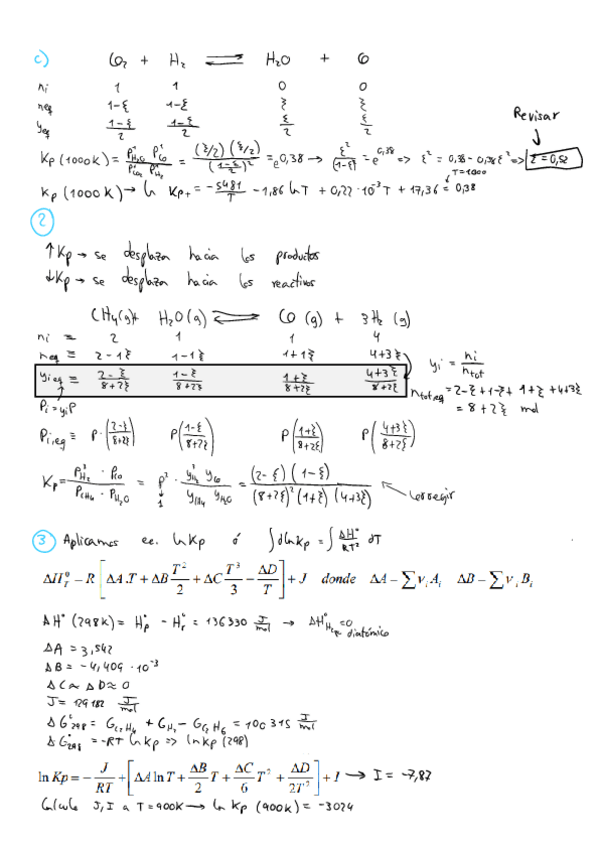 c) CO₂ + H₂ ⇌ H₂O + CO
ni 1 1 0 0
neq 1-ξ 1-ξ ξ ξ
yeq (1-ξ)/2 (1-ξ)/2 ξ/2 ξ/2
Revisar
Kp (1000K) = (P¹H₂O P¹CO)/(P¹CO₂ P¹H₂) = ((ξ/2)(ξ/2))/((1-ξ)/2)² = e^0,38 → ξ²/(1-ξ)² = e^0,38 => ξ² = 0,38 - 0,38ξ² => ξ = 0,52
T=1000
Kp (1000K) → ln KpT = -5481/T - 1,86 lnT + 0,27·10⁻³T + 17,36 = 0,38
2
↑Kp → se desplaza hacia los productos
↓Kp → se desplaza hacia los reactivos
CH₄(g) + H₂O(g) ⇌ CO (g) + 3H₂ (g)
ni = 2 1 1 4
neq = 2-1ξ 1-1ξ 1+1ξ 4+3ξ
yi = ni/ntot
yi eq = (2-ξ)/(8+2ξ) (1-ξ)/(8+2ξ) (1+ξ)/(8+2ξ) (4+3ξ)/(8+2ξ)
ntot,eq = 2-ξ+1-ξ+1+ξ+4+3ξ
= 8+2ξ mol
Pi = yiP
Pi,eq = P·((2-ξ)/(8+2ξ)) P((1-ξ)/(8+2ξ)) P((1+ξ)/(8+2ξ)) P((4+3ξ)/(8+2ξ))
Kp = (P³H₂ · PCO)/(PCH₄ · PH₂O) = P² · (y³H₂ yCO)/(yCH₄ yH₂O) = ((2-ξ)(1-ξ))/((8+2ξ)²(1+ξ)(4+3ξ)) corregir
1
3 Aplicamos ec. lnKp ó ∫dlnKp = ∫ΔH°/RT² dT
ΔH°T = R [ΔA.T + ΔB T²/2 + ΔC T³/3 - ΔD/T] + J donde ΔA = ∑νiAi ΔB = ∑νiBi
ΔH° (298K) = H°p - H°r = 136330 J/mol → ΔH°H₂,g = 0
diatómico
ΔA = 3,542
ΔB = -4,409 · 10⁻³
ΔC ≈ ΔD ≈ 0
J = 129182 J/mol
ΔG°298 = GC₂H₄ + GH₂ - GC₂H₆ = 100315 J/mol
ΔG°298 = -RT lnKp => lnKp (298)
ln Kp = - J/RT + [ΔA ln T + ΔB/2 T + ΔC/6 T² + ΔD/2T²] + I → I = -7,87
Calculo J, I a T=900K → ln Kp (900K) = -3024